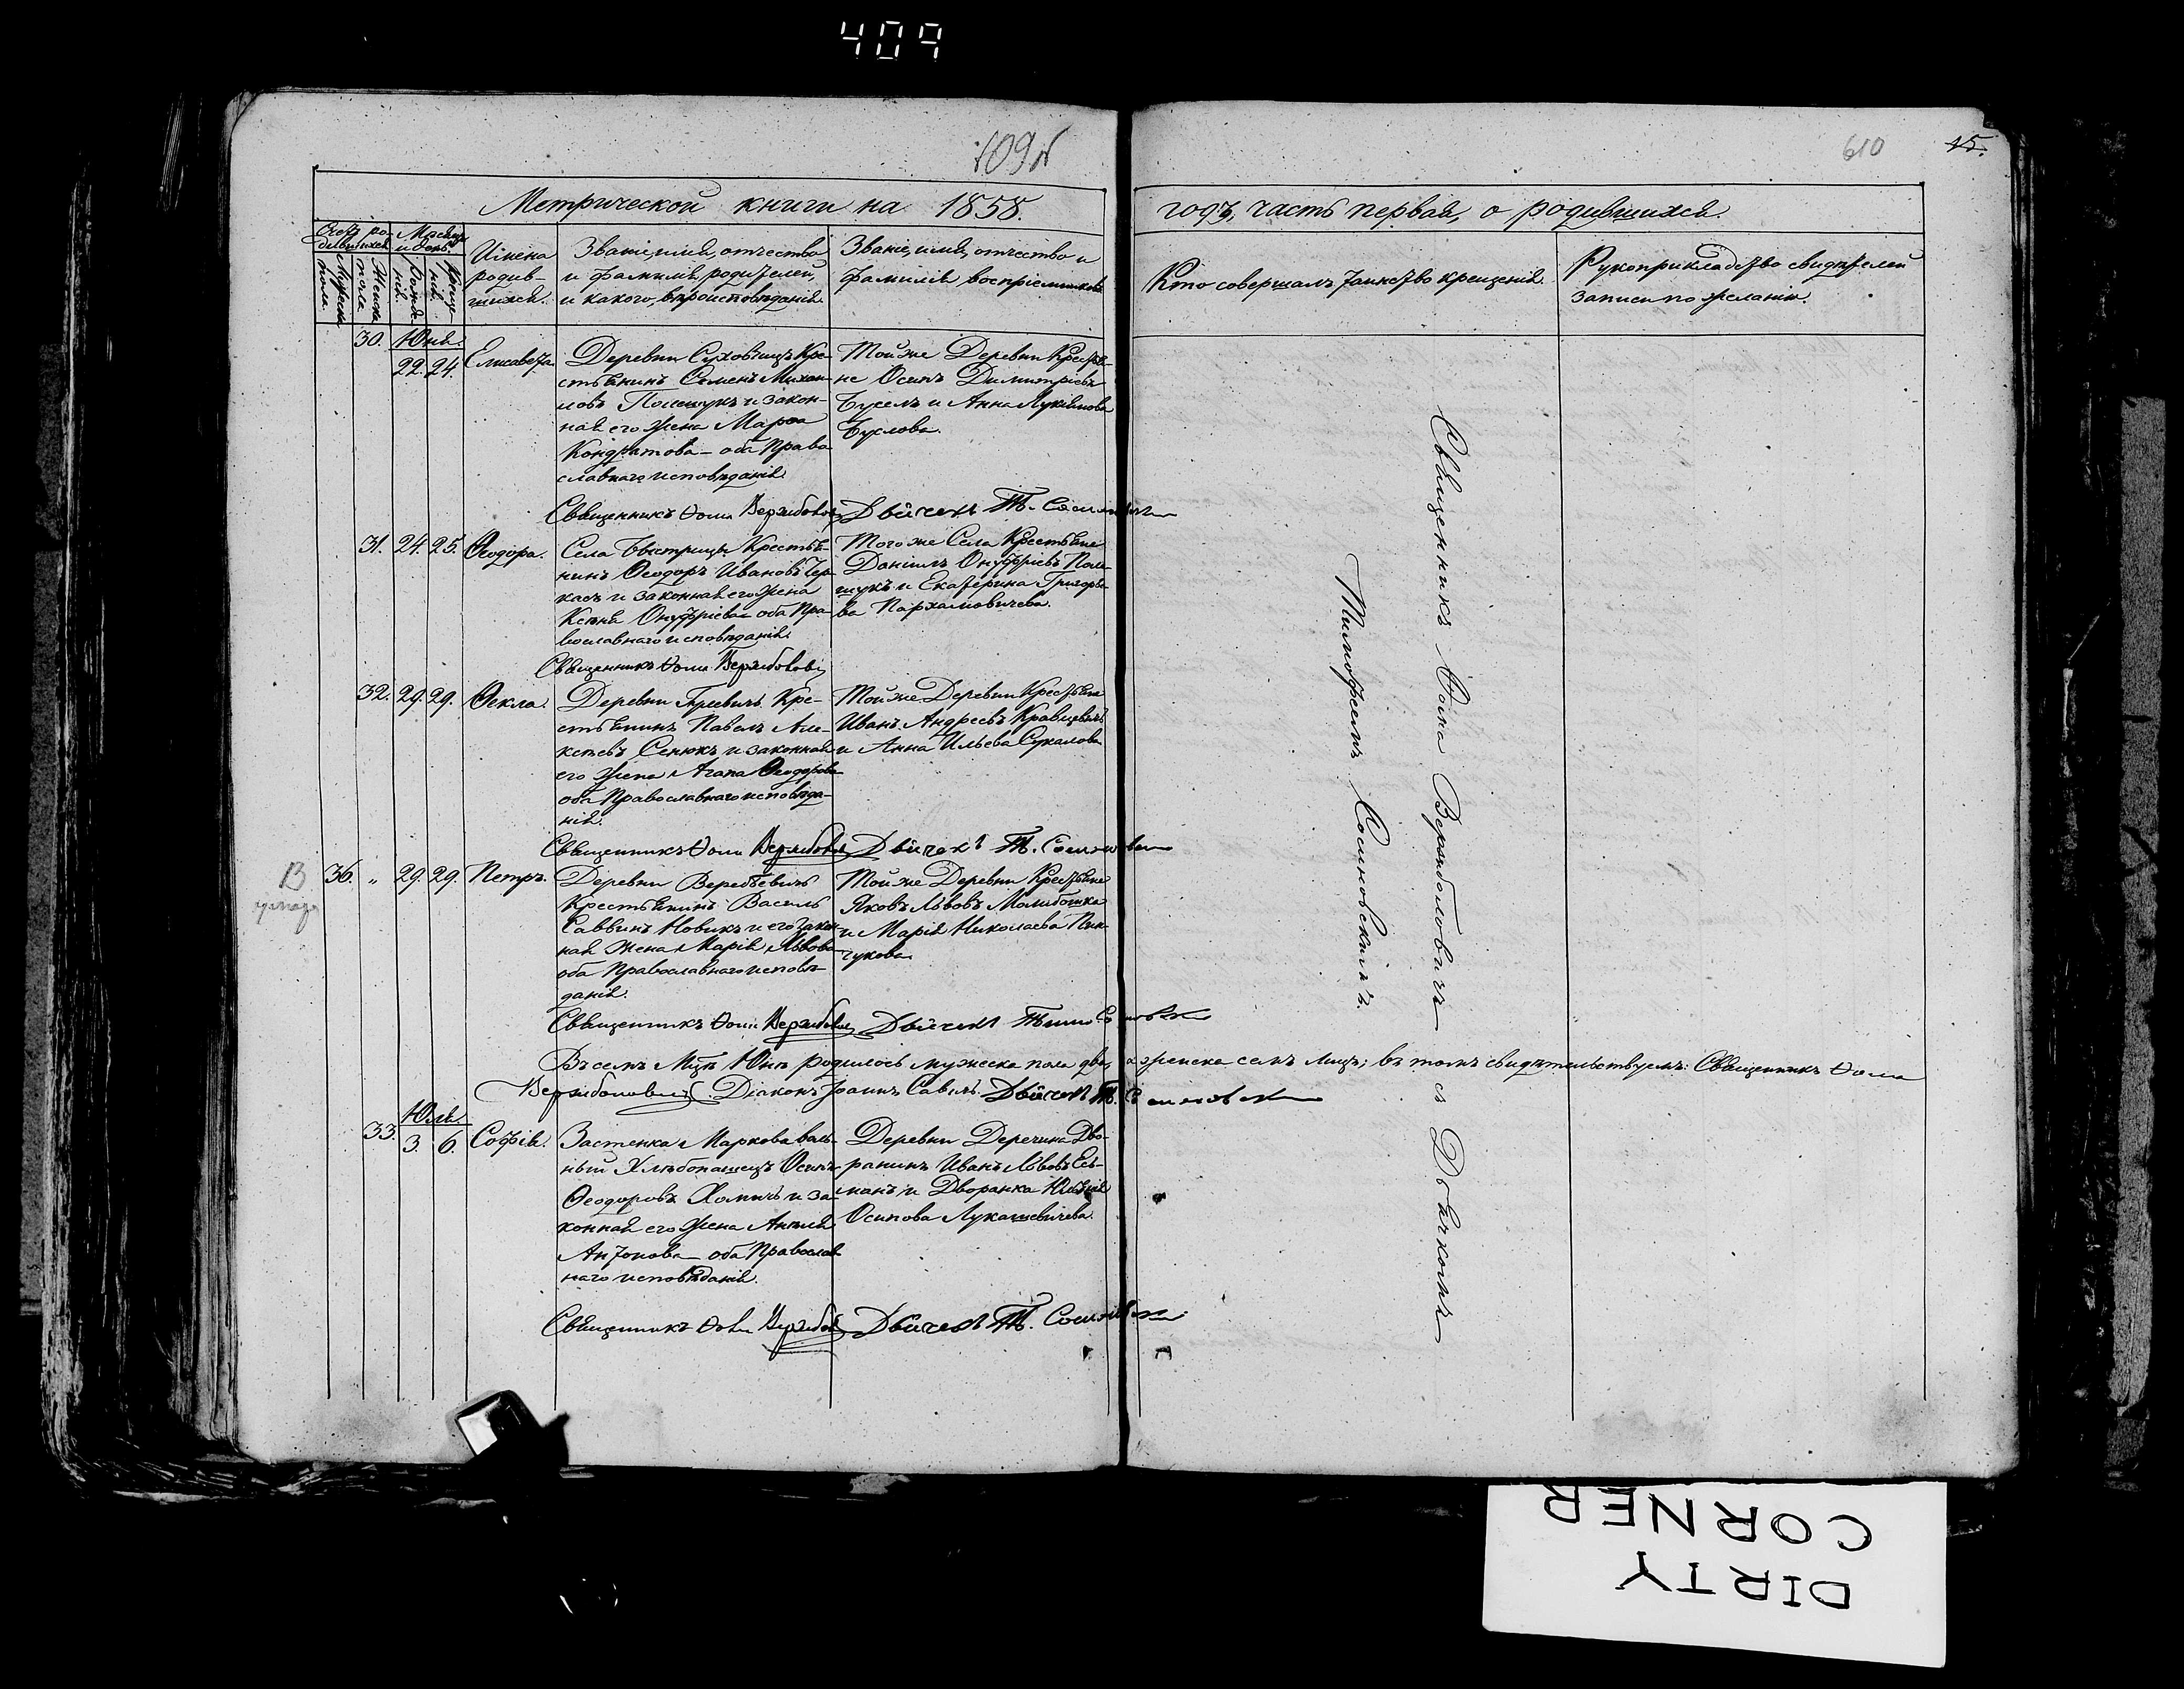 409
609
610
15.
Метрической книги на 1858.
годъ, часть первая, о родившихся.
Счетъ ро-
дившихся
Мужеска
пола.
Женска
пола
Мѣсяцъ
и день
Рожде
нія
Креще
нія.
Имена
родив-
шихся.
Званіе, имя, отчество
и фамилія родителей,
и какого вѣроисповѣданія.
Званіе, имя, отчество и
фамилія воспріемниковъ
Кто совершалъ таинство крещенія.
Рукоприкладство свидѣтелей
записи по желанію.
30.
Юня.
22. 24.
Елисавета
Деревни Суховчицъ Кре-
стьянинъ Семенъ Михаи-
ловъ Полещукъ и закон-
ная его жена Марѳа
Кондратова – оба Право
славнаго исповѣданія.
Той же Деревни Крестья-
не Осипъ Димитріевъ
Буселъ и Анна Лукіянова
Буслова.
Священникъ Ѳома Вержболович Дьячекъ Т.
31. 24. 25. Ѳеодора.
Села Быстрицы Крестья-
нинъ Ѳеодоръ Ивановъ Чер
касъ и законная его жена
Ксенія Онуфріева – оба Пра-
вославнаго исповѣданія.
Того же Села Крестьяне
Даніилъ Онуфріевъ Поле-
щукъ и Екатерина Григорье
ва Пархамовичева.
Священникъ Ѳома Вержболович
32. 29. 29. Ѳекла.
Деревни Кре-
стьянинъ Павелъ Але-
ксѣевъ Сенюкъ и законная
его жена Агапа Ѳеодорова
оба Православнаго исповѣда-
нія.
Той же Деревни Крестьяне
Иванъ Андреевъ
и Анна Ильева Сукалова
Священникъ Ѳома Вержболович Дьячекъ Т.
36. „ 29. 29. Петръ.
Деревни Веребьевичъ
Крестьянинъ Василь
Саввинъ Новикъ и его закон
ная жена Марія Львова
оба Православнаго исповѣ-
данія.
Той же Деревни Крестьяне
Яковъ Львовъ Молибошка
и Марія Николаева Пин
чукова
Священникъ Ѳома Вержболович Дьячекъ
Въ семъ Мцѣ Юнѣ родилось мужеска пола два, а женска семь лицъ; въ томъ свидѣтельствуемъ: Священникъ Ѳома
Вержболович Діаконъ Іоаннъ Савичъ. Дьячекъ Т. Сосиновски
33.
Юля.
3. 6.
Софія.
Застенка Маркова воль-
ный Хлѣбопашецъ Осипъ
Ѳеодоровъ Хомичъ и за-
конная его жена Анеля
Антонова – оба Православ
наго исповѣданія.
Деревни Деречина Дво-
рянинъ Иванъ Львовъ Есь-
манъ и Дворянка Юлія
Осипова Лукашевичева.
Священникъ Ѳома Вержбол Дьячекъ Т.
Священникъ Ѳома Вержболовичъ съ Дьячкомъ
Тимофеемъ Сосиновскимъ.
DIRTY
CORNER